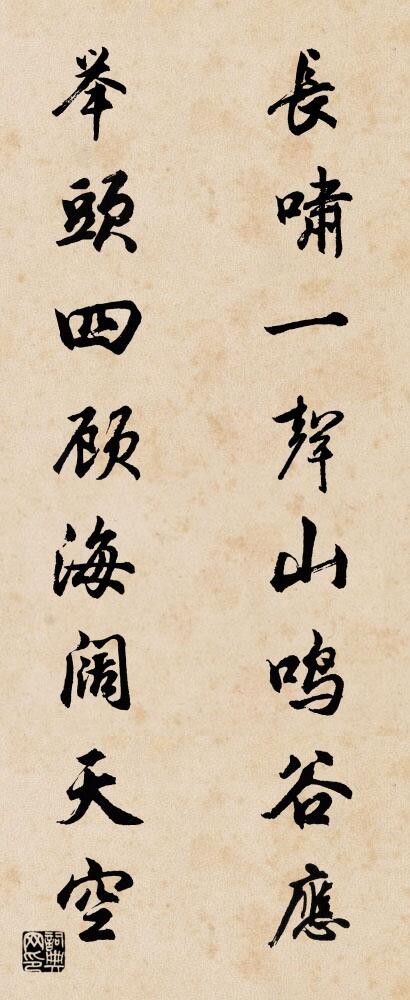 長嘯一聲山鳴谷應
举頭四顾海阔天空
詞典網印